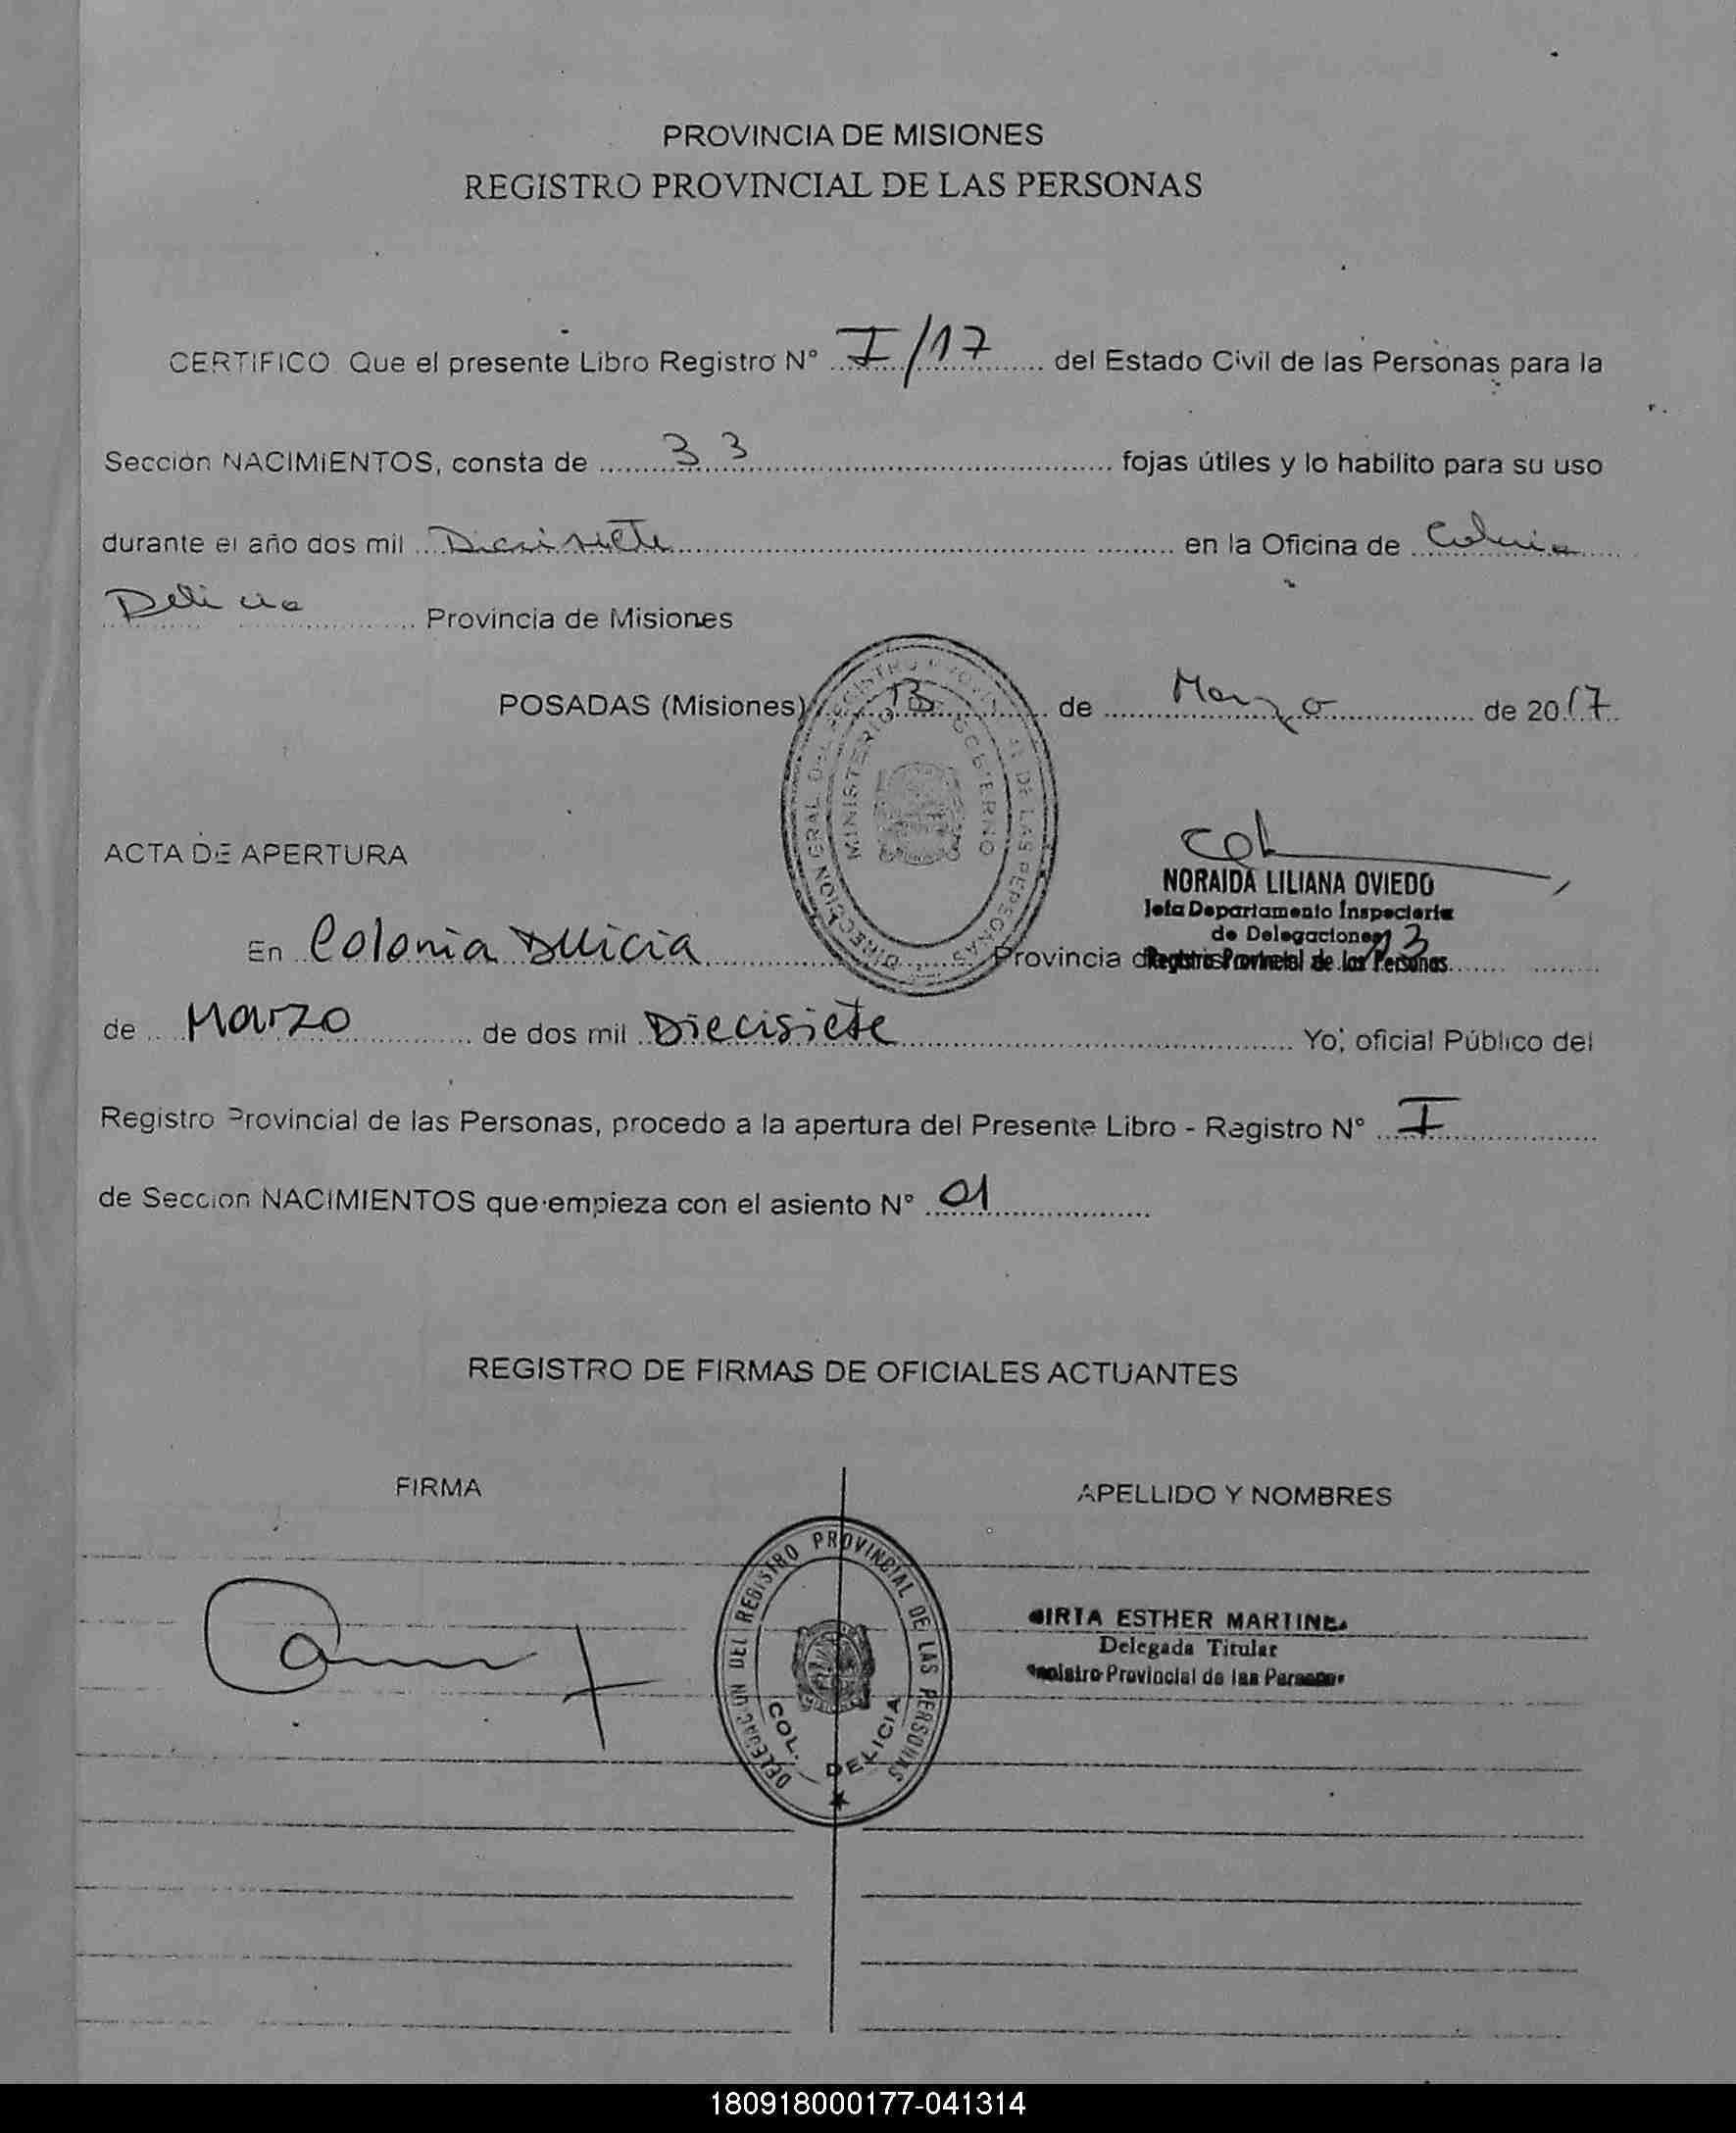 PROVINCIA DE MISIONES
REGISTRO PROVINCIAL DE LAS PERSONAS
CERTIFICO Que el presente Libro Registro N° I/17 del Estado Civil de las Personas para la
Sección NACIMIENTOS, consta de 33 fojas útiles y lo habilito para su uso
durante el año dos mil Diecisiete en la Oficina de Colonia
Delicia Provincia de Misiones
POSADAS (Misiones) 13 de Marzo de 2017
DIRECCION GRAL DEL REGISTRO PROVINCIAL DE LAS PERSONAS
MINISTERIO DE GOBIERNO
ACTA DE APERTURA
NORAIDA LILIANA OVIEDO
Jefa Departamento Inspectoría
de Delegaciones
Registro Provincial de las Personas
En Colonia Delicia Provincia de Misiones 13
de Marzo de dos mil Diecisiete Yo, oficial Público del
Registro Provincial de las Personas, procedo a la apertura del Presente Libro - Registro N° I
de Sección NACIMIENTOS que empieza con el asiento N° 01
REGISTRO DE FIRMAS DE OFICIALES ACTUANTES
FIRMA APELLIDO Y NOMBRES
DELEGACION DEL REGISTRO PROVINCIAL DE LAS PERSONAS
COL. DELICIA
ESTHER
Delegada Titular
Registro Provincial de las Personas
180918000177-041314